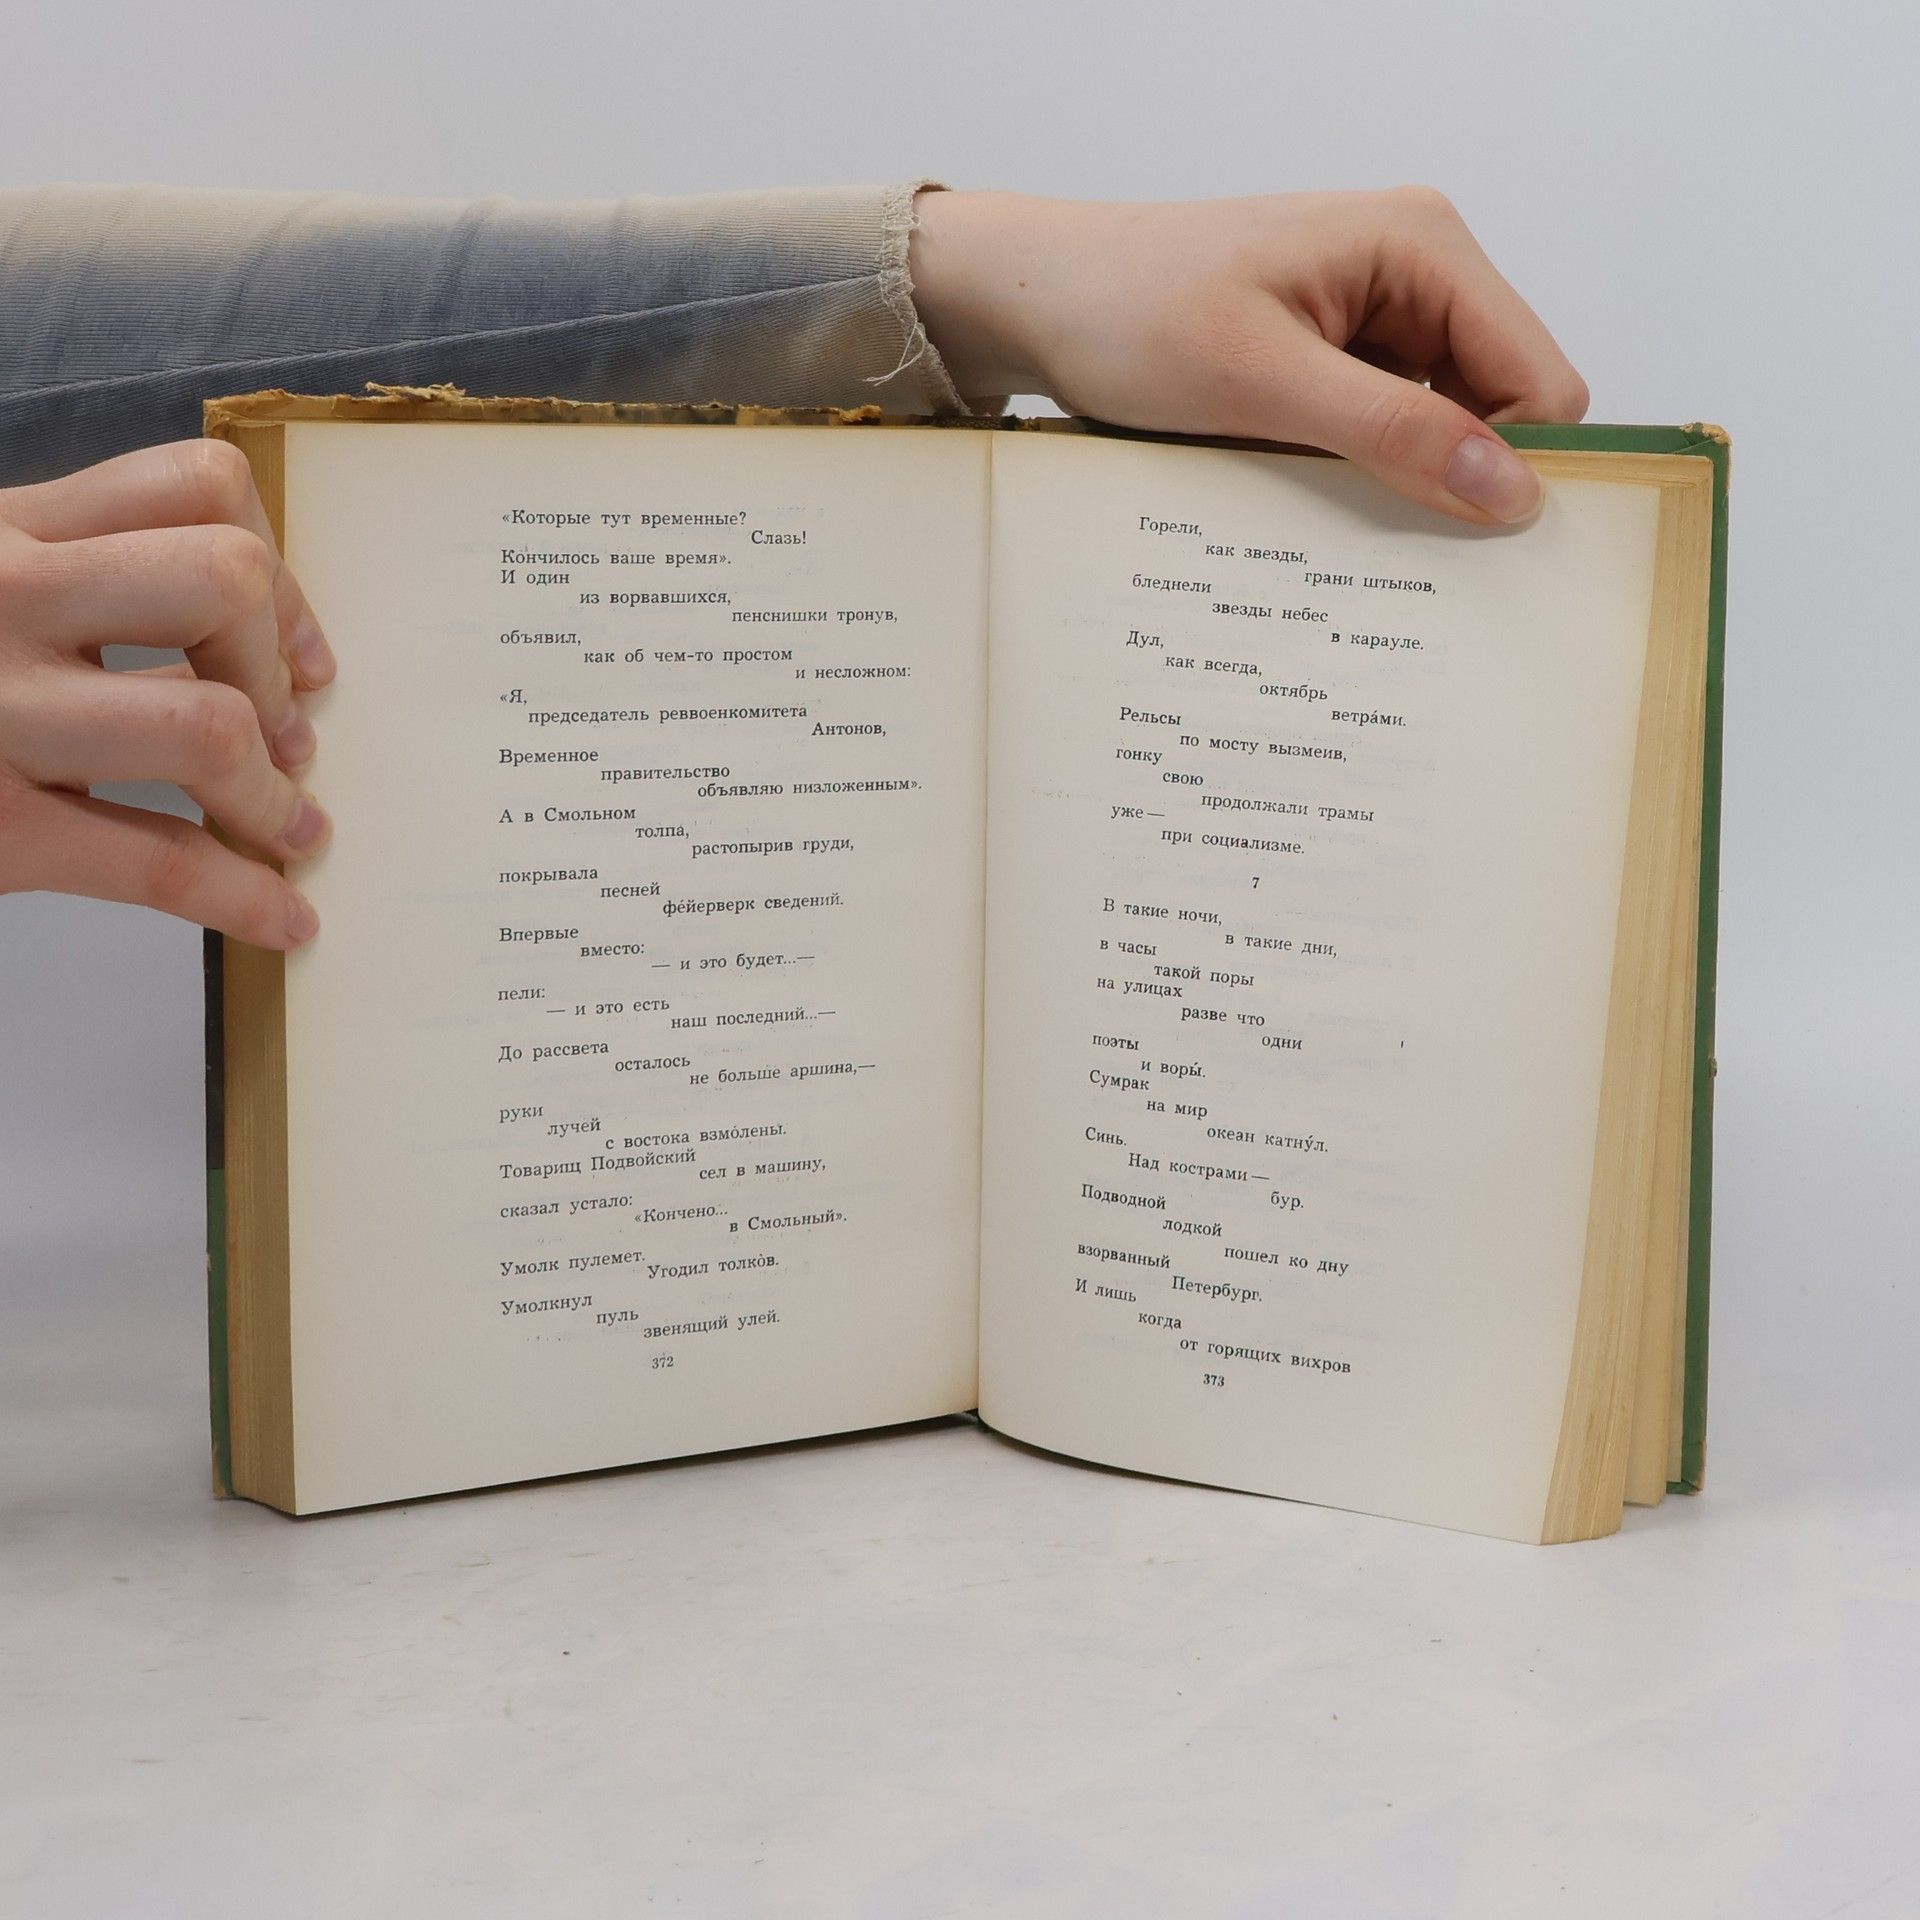 «Которые тут временные?
Слазь!
Кончилось ваше время».
И один
из ворвавшихся,
пенснишки тронув,
объявил,
как об чем-то простом
и несложном:
«Я,
председатель реввоенкомитета
Антонов,
Временное
правительство
объявляю низложенным».
А в Смольном
толпа,
растопырив груди,
покрывала
песней
фе́йерверк сведений.
Впервые
вместо:
— и это будет...—
пели:
— и это есть
наш последний...—
До рассвета
осталось
не больше аршина,—
руки
лучей
с востока взмо́лены.
Товарищ Подвойский
сел в машину,
сказал устало:
«Кончено...
в Смольный».
Умолк пулемет.
Угодил толко́в.
Умолкнул
пуль
звенящий улей.
372
Горели,
как звезды,
грани штыков,
бледнели
звезды небес
в карауле.
Дул,
как всегда,
октябрь
ветра́ми.
Рельсы
по мосту вызмеив,
гонку
свою
продолжали трамы
уже —
при социализме.
7
В такие ночи,
в такие дни,
в часы
такой поры
на улицах
разве что
одни
поэты
и воры́.
Сумрак
на мир
океан катну́л.
Синь.
Над кострами —
бур.
Подводной
лодкой
пошел ко дну
взорванный
Петербург.
И лишь
когда
от горящих вихров
373